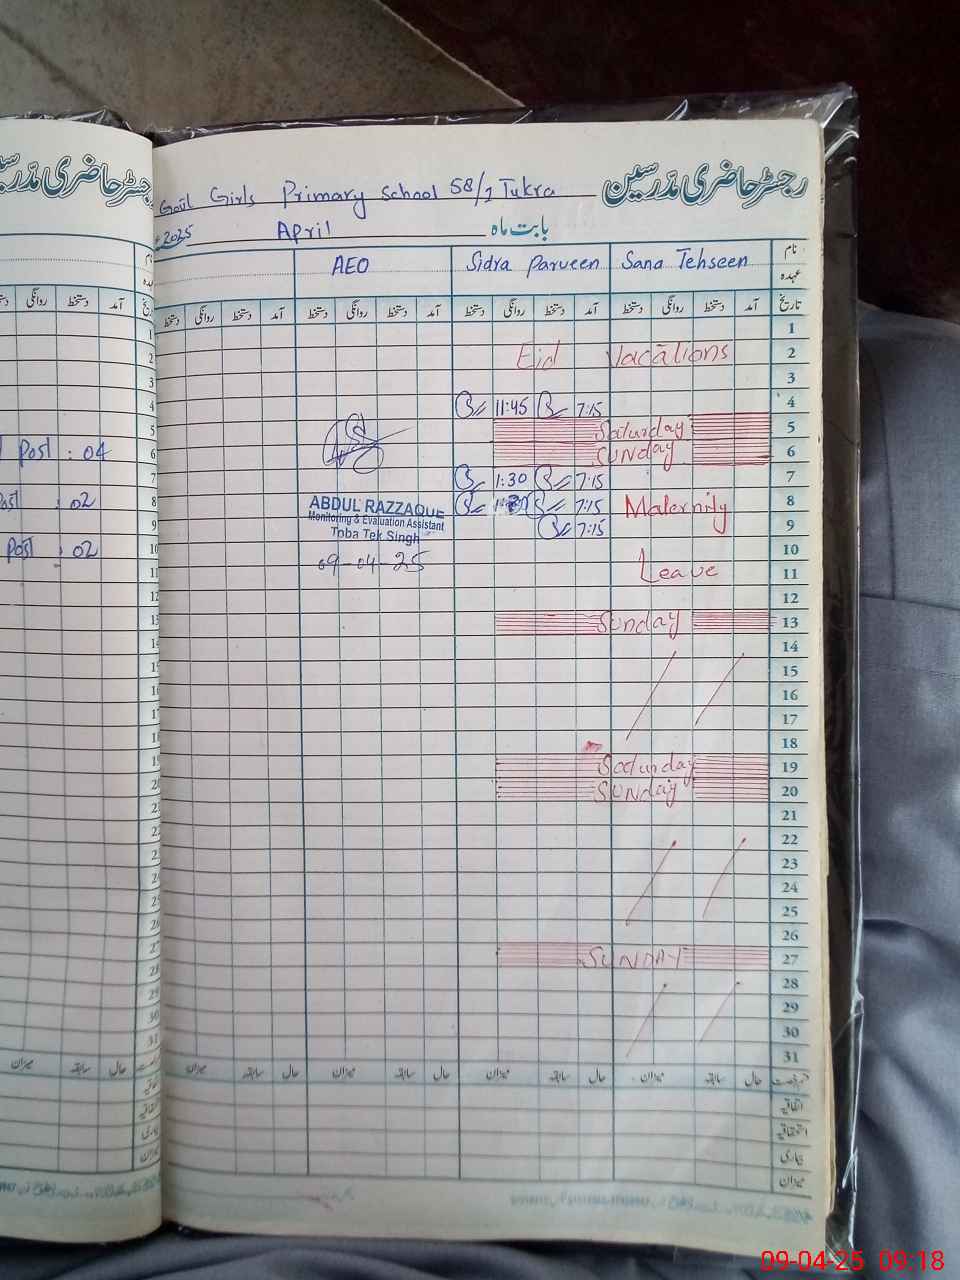 رجسٹر حاضری مدرسین
Govt Girls Primary School 58/2 Tukra
بابت ماہ April 2025
نام Sana Tehseen Sidra Parveen AEO
عہدہ
تاریخ آمد دستخط روانگی دستخط آمد دستخط روانگی دستخط آمد دستخط روانگی دستخط آمد دستخط روانگی دستخط
1
2 Eid Vacations
3
4 7:15 11:45
5 Saturday
6 Sunday
7 7:15 1:30
8 7:15 Maternity
9 7:15
10
11 Leave
12
13 Sunday
14
15
16
17
18
19 Saturday
20 Sunday
21
22
23
24
25
26
27 SUNDAY
28
29
30
31
ABDUL RAZZAQUE
Monitoring & Evaluation Assistant
Toba Tek Singh
09-04-25
حال سابقہ میزان حال سابقہ میزان حال سابقہ میزان حال سابقہ میزان
اتفاقیہ
استحقاقیہ
بیماری
میزان
رجسٹر حاضری مدرسین
آمد دستخط روانگی
Post : 04
Post : 02
Post : 02
حال سابقہ میزان
09-04-25 09:18